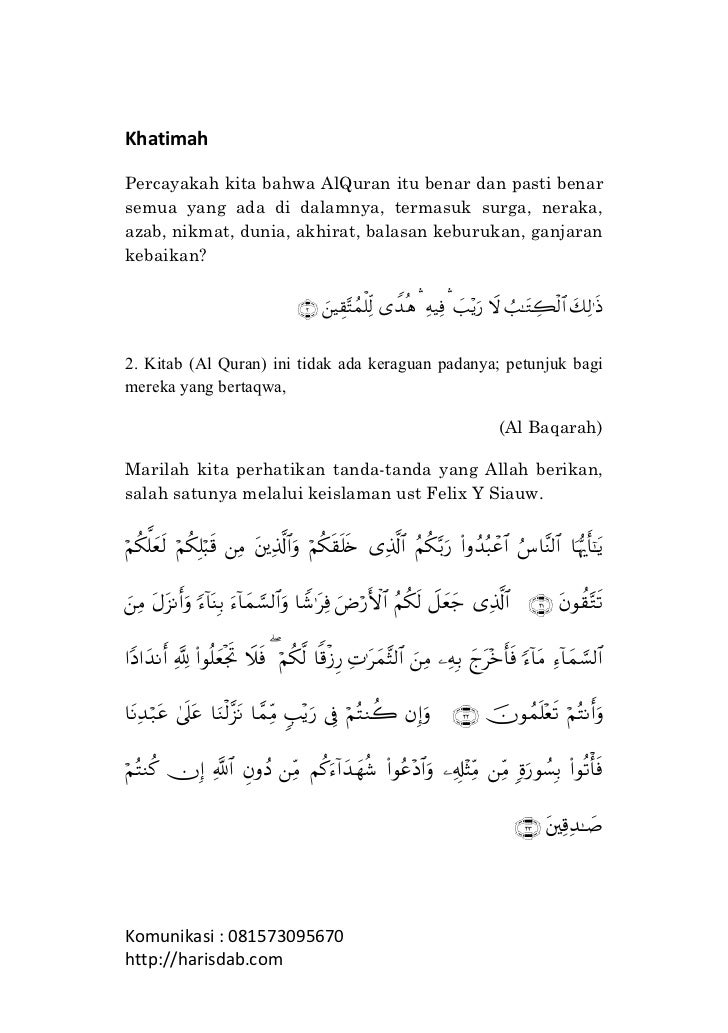 Khatimah
Percayakah kita bahwa AlQuran itu benar dan pasti benar
semua yang ada di dalamnya, termasuk surga, neraka,
azab, nikmat, dunia, akhirat, balasan keburukan, ganjaran
kebaikan?
ذَٰلِكَ ٱلْكِتَـٰبُ لَا رَيْبَ ۛ فِيهِ ۛ هُدًى لِّلْمُتَّقِينَ ﴿٢﴾
2. Kitab (Al Quran) ini tidak ada keraguan padanya; petunjuk bagi
mereka yang bertaqwa,
(Al Baqarah)
Marilah kita perhatikan tanda-tanda yang Allah berikan,
salah satunya melalui keislaman ust Felix Y Siauw.
يَـٰٓأَيُّهَا ٱلنَّاسُ ٱعْبُدُوا۟ رَبَّكُمُ ٱلَّذِى خَلَقَكُمْ وَٱلَّذِينَ مِن قَبْلِكُمْ لَعَلَّكُمْ
تَتَّقُونَ ﴿٢١﴾ ٱلَّذِى جَعَلَ لَكُمُ ٱلْأَرْضَ فِرَٰشًا وَٱلسَّمَآءَ بِنَآءً وَأَنزَلَ مِنَ
ٱلسَّمَآءِ مَآءً فَأَخْرَجَ بِهِۦ مِنَ ٱلثَّمَرَٰتِ رِزْقًا لَّكُمْ ۖ فَلَا تَجْعَلُوا۟ لِلَّهِ أَندَادًا
وَأَنتُمْ تَعْلَمُونَ ﴿٢٢﴾ وَإِن كُنتُمْ فِى رَيْبٍ مِّمَّا نَزَّلْنَا عَلَىٰ عَبْدِنَا
فَأْتُوا۟ بِسُورَةٍ مِّن مِّثْلِهِۦ وَٱدْعُوا۟ شُهَدَآءَكُم مِّن دُونِ ٱللَّهِ إِن كُنتُمْ
صَـٰدِقِينَ ﴿٢٣﴾
Komunikasi : 081573095670
http://harisdab.com